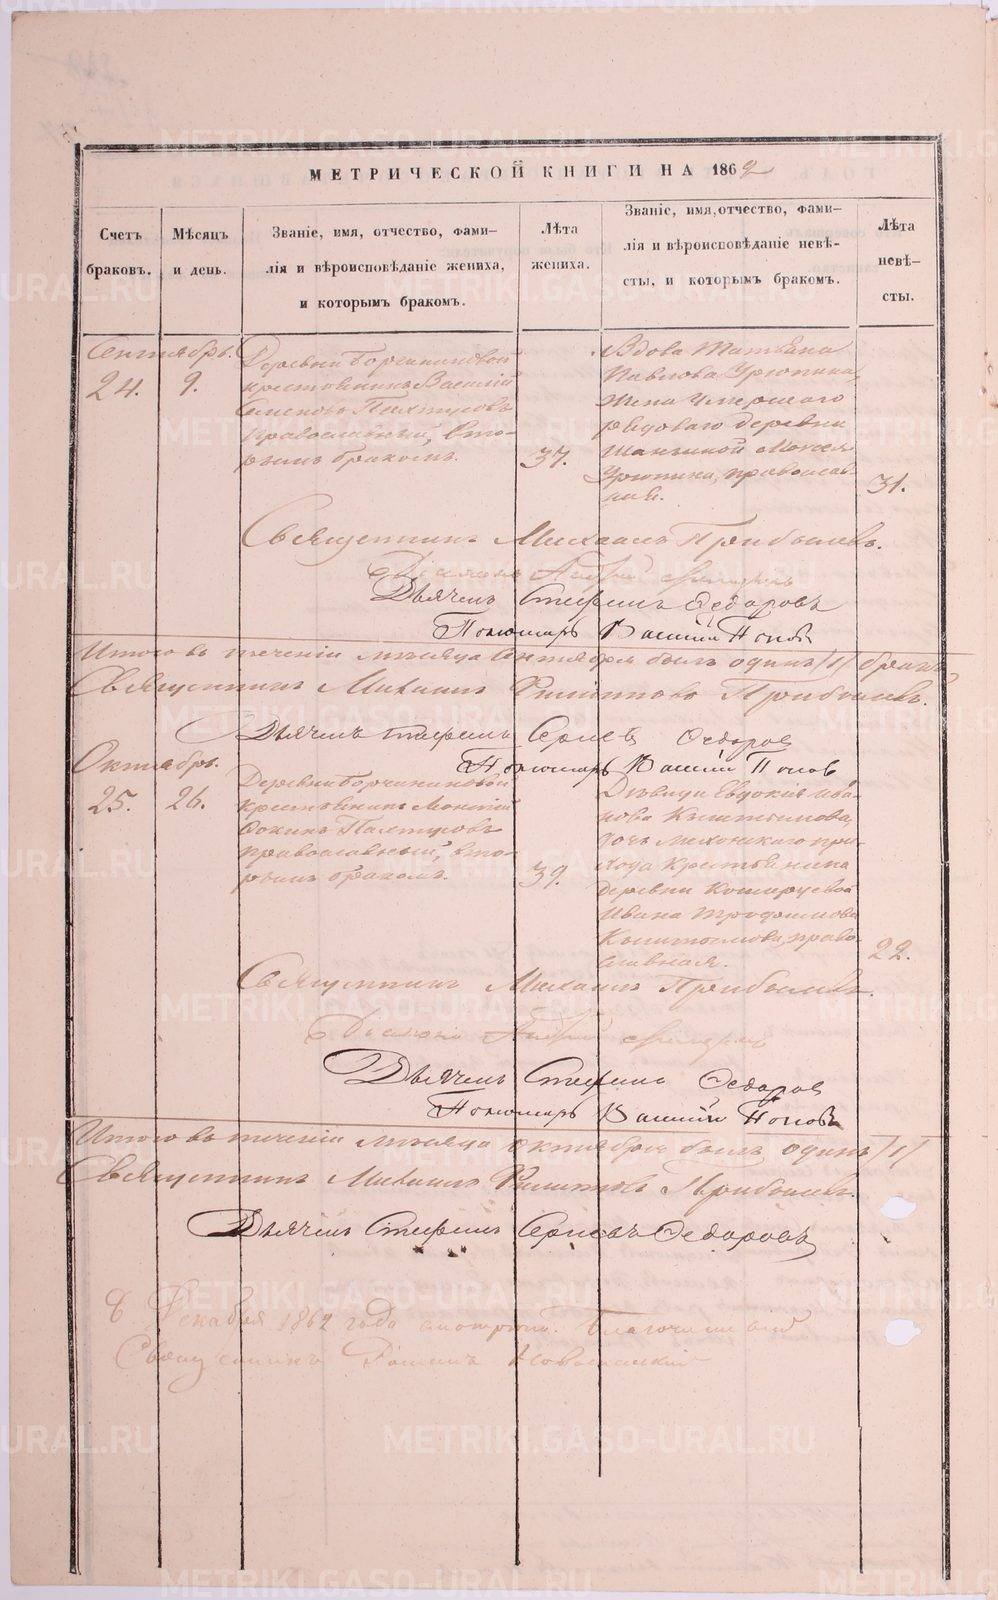 МЕТРИЧЕСКОЙ КНИГИ НА 1862
Счетъ браковъ.
Мѣсяцъ и день.
Званіе, имя, отчество, фами-
лія и вѣроисповѣданіе жениха,
и которымъ бракомъ.
Лѣта
жениха.
Званіе, имя, отчество, фами-
лія и вѣроисповѣданіе невѣ-
сты, и которымъ бракомъ.
Лѣта
невѣ-
сты.
Сентябрь.
24.
9.
Деревни
крестьянинъ Василій
Семеновъ
православный, вто-
рымъ бракомъ.
37.
Вдова Татьяна
Павлова Урюпина,
жена умершаго
рядоваго деревни
Шаньиной Моисея
Урюпина, православ-
ная.
31.
Священникъ Михаилъ Прибылевъ.
Діаконъ Андрей
Дьячекъ Стефанъ Федоровъ
Пономарь Василій Поповъ
Итого въ теченіи мѣсяца Сентября былъ одинъ /1/ бракъ
Священникъ Михаилъ Филиповъ Прибылевъ.
Дьячекъ Стефанъ Сергіевъ Федоровъ
Пономарь Василій Поповъ
Октябрь.
25.
26.
Деревни
крестьянинъ
православный, вто-
рымъ бракомъ.
39.
Дѣвица Евдокія Ива-
нова
дочь при-
хода крестьянина
деревни
Ивана Трофимова
право-
славная.
22.
Священникъ Михаилъ Прибылевъ.
Діаконъ Андрей
Дьячекъ Стефанъ Федоровъ
Пономарь Василій Поповъ
Итого въ теченіи мѣсяца Октября былъ одинъ /1/
Священникъ Михаилъ Филиповъ Прибылевъ.
Дьячекъ Стефанъ Сергіевъ Федоровъ
8 Декабря 1862 года смотрѣлъ. Благочинный
Священникъ
METRIKI.GASO-URAL.RU